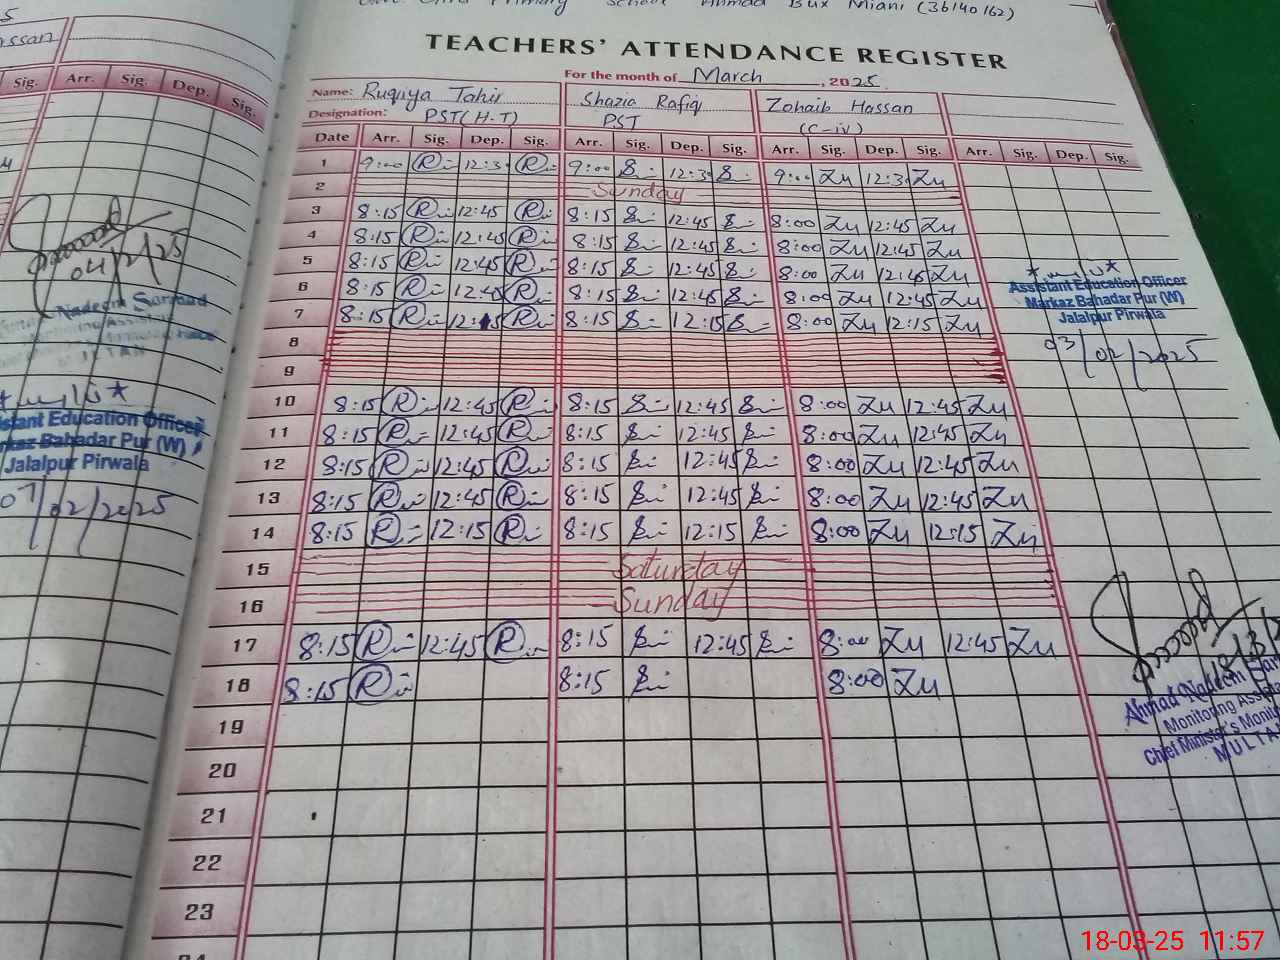 Primary School Ahmad Bux Miani (36140162)
TEACHERS' ATTENDANCE REGISTER
For the month of March, 2025
Name: Ruqiya Tahir Shazia Rafiq Zohaib Hassan
Designation: PST(H-T) PST (C-iv)
Date Arr. Sig. Dep. Sig. Arr. Sig. Dep. Sig. Arr. Sig. Dep. Sig. Arr. Sig. Dep. Sig.
1 9:00 12:3 9:00 12:3 9:00 Zu 12:3 Zu
2 Sunday
3 8:15 12:45 8:15 12:45 8:00 Zu 12:45 Zu
4 8:15 12:45 8:15 12:45 8:00 Zu 12:45 Zu
5 8:15 12:45 8:15 12:45 8:00 Zu 12:45 Zu
6 8:15 12:45 8:15 12:45 8:00 Zu 12:45 Zu
7 8:15 12:15 8:15 12:15 8:00 Zu 12:15 Zu
8
9
10 8:15 12:45 8:15 12:45 8:00 Zu 12:45 Zu
11 8:15 12:45 8:15 12:45 8:00 Zu 12:45 Zu
12 8:15 12:45 8:15 12:45 8:00 Zu 12:45 Zu
13 8:15 12:45 8:15 12:45 8:00 Zu 12:45 Zu
14 8:15 12:15 8:15 12:15 8:00 Zu 12:15 Zu
15 Saturday
16 Sunday
17 8:15 12:45 8:15 12:45 8:00 Zu 12:45 Zu
18 8:15 8:15 8:00 Zu
19
20
21
22
23
24
Assistant Education Officer
Markaz Bahadar Pur (W)
Jalalpur Pirwala
03/02/2025
18/3/
Ahmad Nadeem
Monitoring
Chief Minister's
MULTAN
Sig. Arr. Sig. Dep. Sig.
04/2/25
Nadeem Sarmad
Education Officer
Markaz Bahadar Pur (W)
Jalalpur Pirwala
07/02/2025
18-03-25 11:57